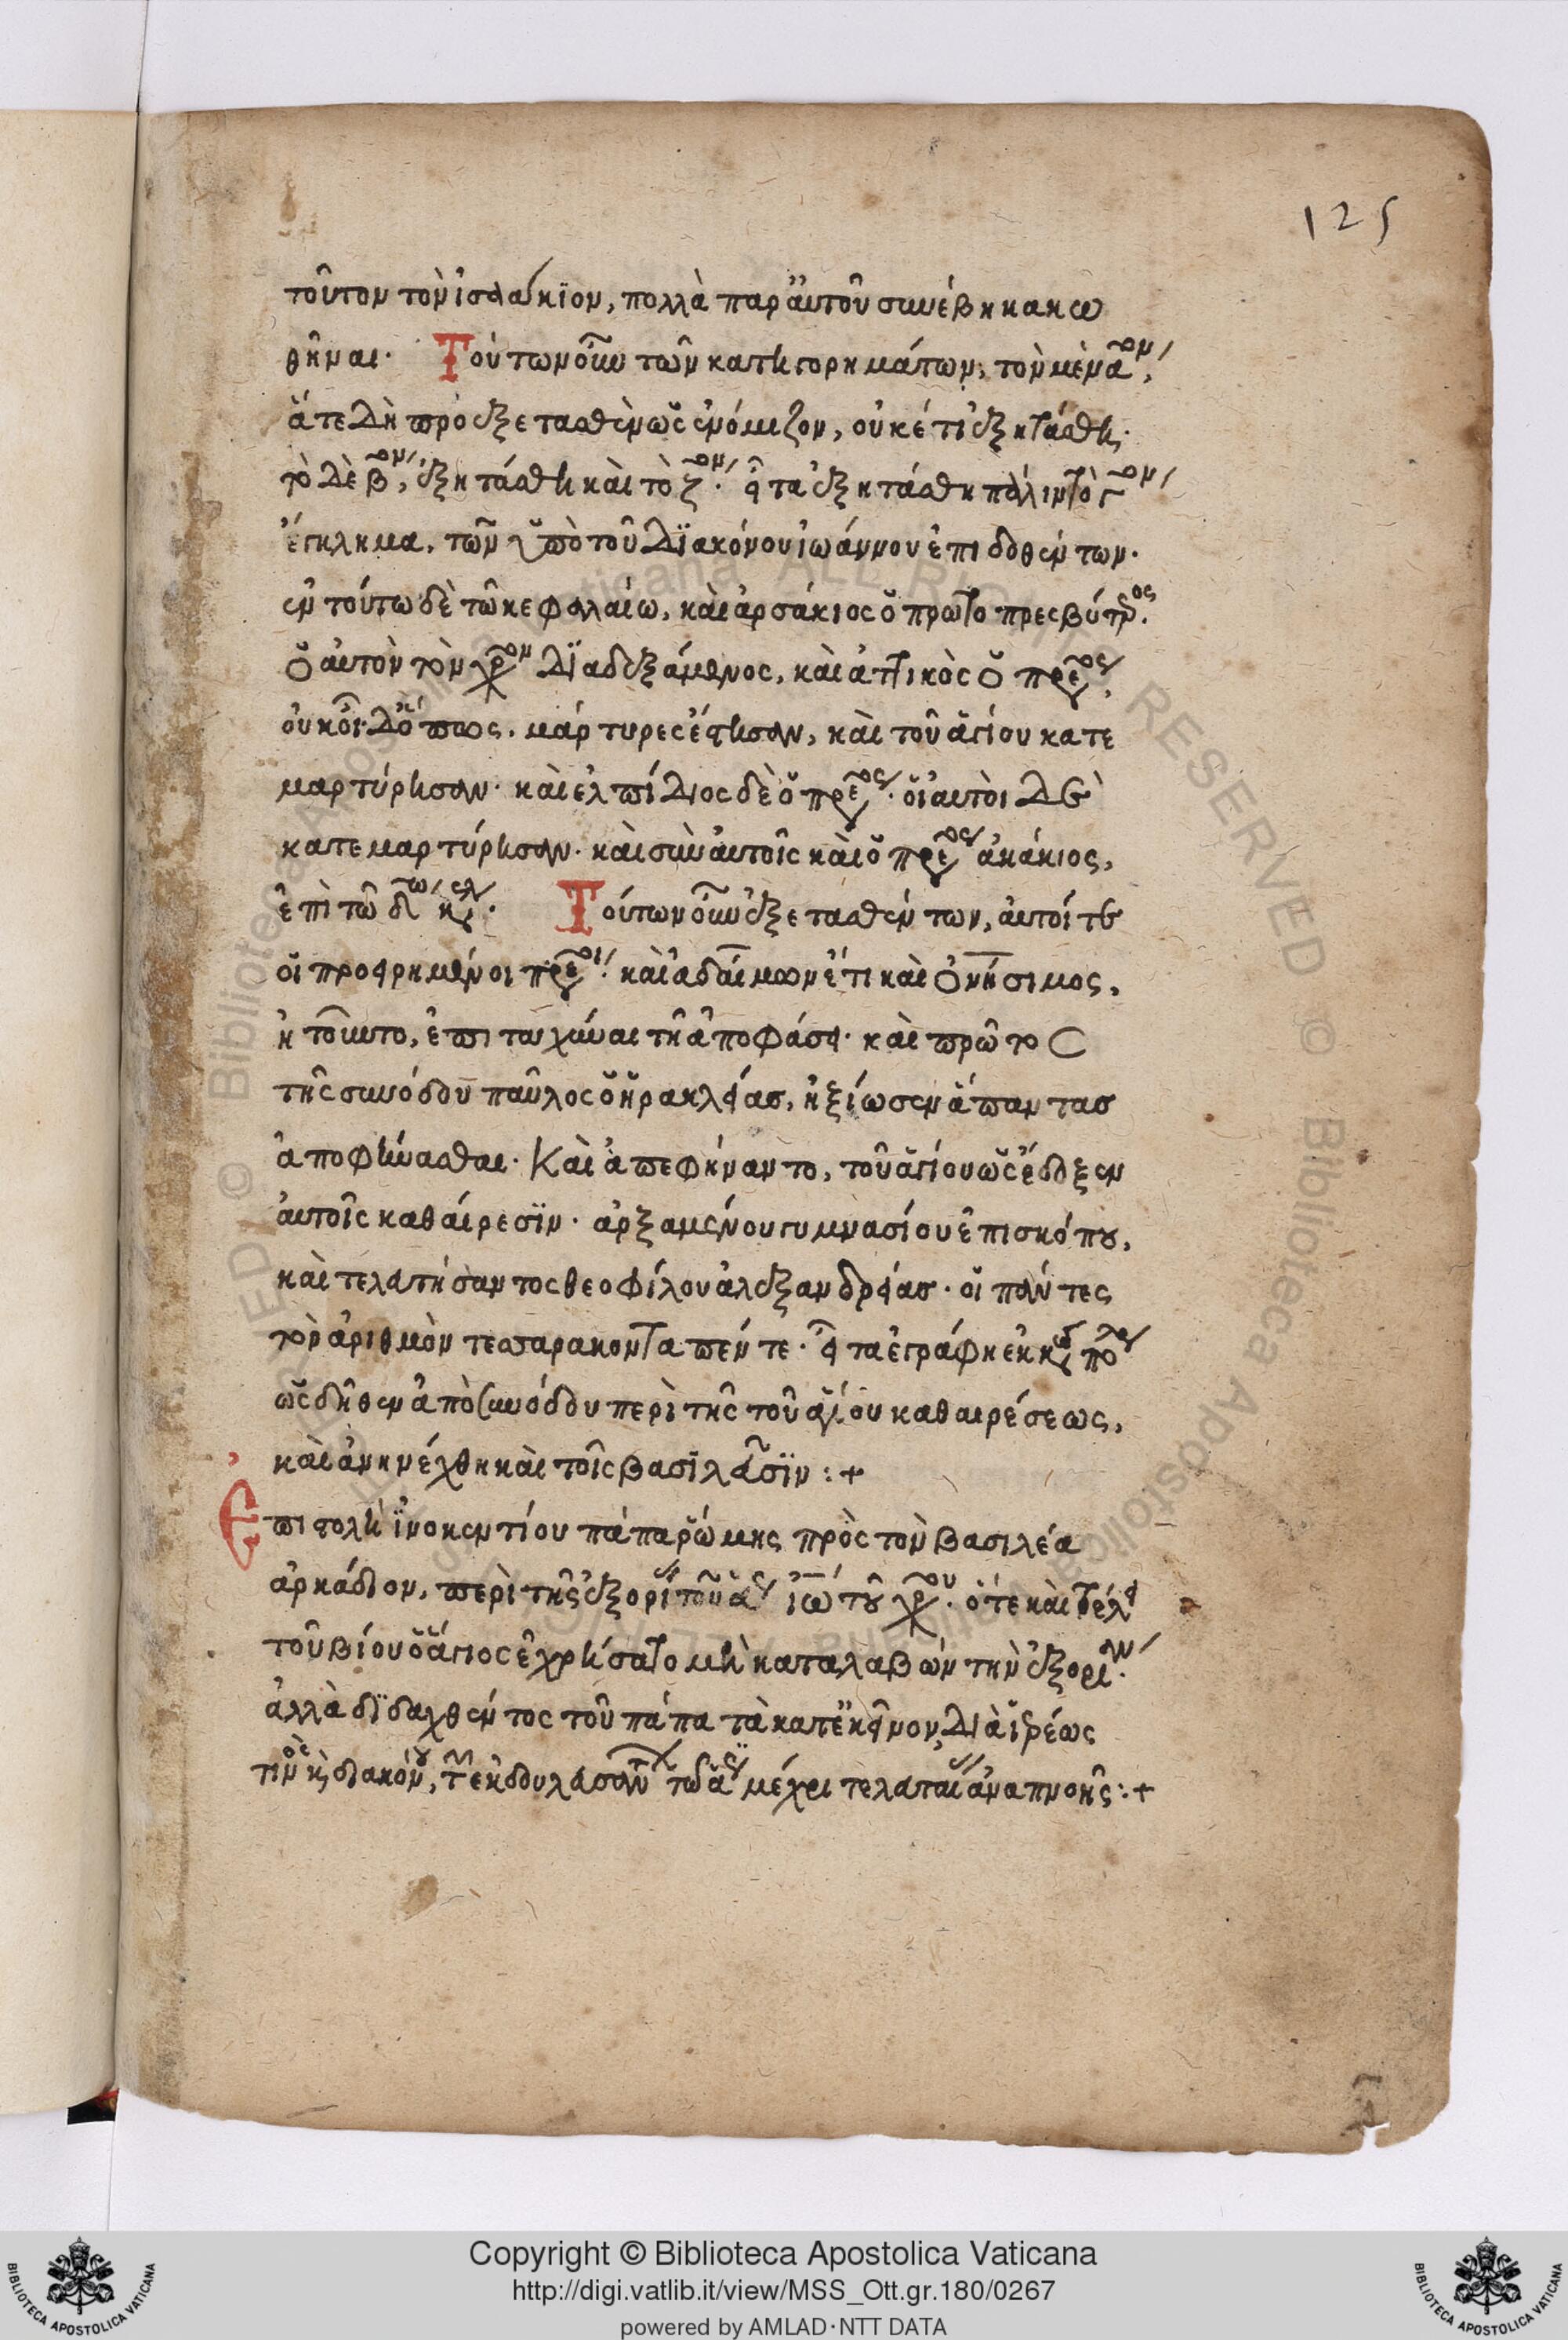 125
τοῦτον τὸν ἰσαάκϊον, πολλὰ παρ' αὐτοῦ συνέβη κακω
θῆναι. Τούτων οὖν τῶν κατηγορημάτων, τὸν μὲν α ον,
ἅτε δὴ προεξετασθὲν ὡς ἐνόμιζον, οὐκέτι ἐξητάσθη.
τὸ δὲ β ον, ἐξητάσθη καὶ τὸ ζ ον. εἶτα ἐξητάσθη πάλιν τὸ γ ον
ἔγκλημα, τῶν ὑπὸ τοῦ διακόνου ἰωάννου ἐπιδοθέντων.
ἐν τούτω δὲ τῶ κεφαλαίω, καὶ ἀρσάκιος ὁ πρωτοπρεσβύτρος.
ὁ αὐτὸν τὸν χρ ον διαδεξάμενος, καὶ ἀττικὸς ὁ πρε ος,
οὐκ οἶδ' ὅπως. μάρτυρες ἔστησαν, καὶ τοῦ ἁγίου κατε
μαρτύρησαν. καὶ ἐλπίδιος δὲ ὁ πρε ος. οἱ αὐτοὶ δὲ
κατεμαρτύρησαν. καὶ σὺν αὐτοῖς καὶ ὁ πρε ος ἀκάκιος,
ἐπὶ τῶ δ ω ἐγκλ. Τούτων οὖν ἐξετασθέντων, αὐτοί τε
οἱ προειρημένοι πρε οι. καὶ εὐδαίμων ἔτι καὶ ὀνήσιμος,
ἠτοῦντο, ἐπιταχῦναι τῆ ἀποφάσει. καὶ πρῶτος
τῆς συνόδου παῦλος ὁ ἡρακλείας, ἠξίωσεν ἅπαντας
ἀποφήνασθαι. Καὶ ἀπεφήναντο, τοῦ ἁγίου ὡς ἔδοξεν
αὐτοῖς καθαίρεσϊν. ἀρξαμένου γυμνασίου ἐπισκόπου,
καὶ τελευτήσαντος θεοφίλου ἀλεξανδρείας. οἱ πάντες
τὸν ἀριθμὸν τεσσαρακονταπέντε. εἶτα ἐγράφη
ὡς δῆθεν ἀπὸ συνόδου περὶ τῆς τοῦ ἁγίου καθαιρέσεως,
καὶ ἀνηνέχθη καὶ τοῖς βασιλεῦσϊν :+
Ἐπιστολὴ ἰνοκεντίου πάπα ῥώμης πρὸς τὸν βασιλέα
ἀρκάδιον, περὶ τῆς ἐξορί τοῦ ἁγ ἰω τοῦ χρ ου. ὅτε καὶ τέλει
τοῦ βίου ὁ ἅγιος ἐχρήσατο μὴ καταλαβὼν τὴν ἐξορίαν.
ἀλλὰ διδαχθέντος τοῦ πάπα τὰ κατ' ἐκεῖνον, διὰ ἱερέως
τιν κ διακόν, τ ἐκδουλευσάν τῶ ἁγ μέχρι τελευταί ἀναπνοῆς :+
Copyright © Biblioteca Apostolica Vaticana
http://digi.vatlib.it/view/MSS_Ott.gr.180/0267
powered by AMLAD·NTT DATA